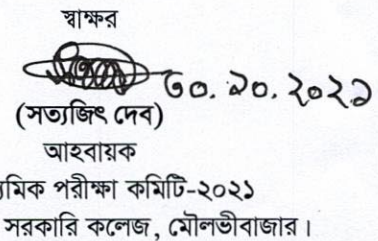 স্বাক্ষর
৩০.১০.২০২১
(সত্যজিৎ দেব)
আহবায়ক
পরীক্ষা কমিটি-২০২১
সরকারি কলেজ, মৌলভীবাজার।